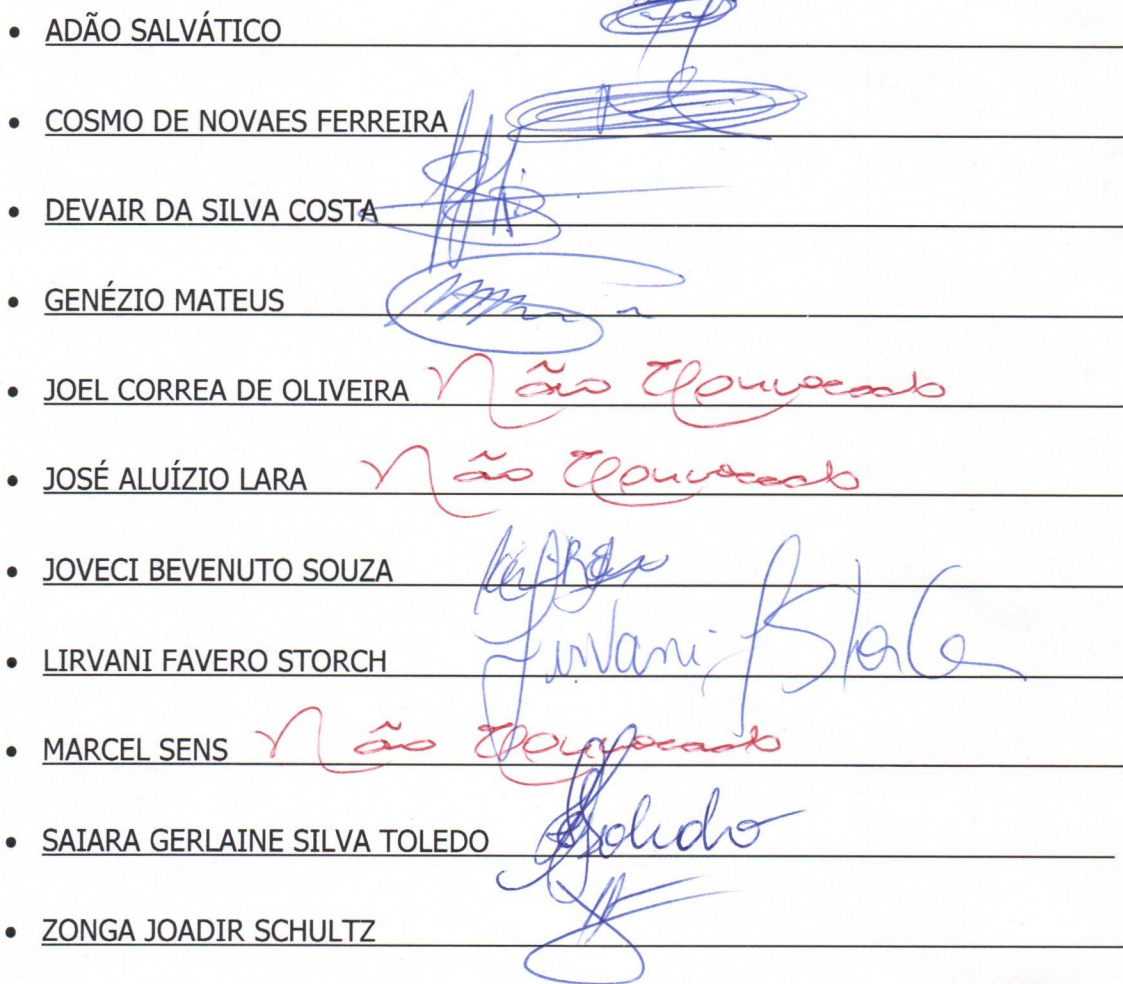 • ADÃO SALVÁTICO
• COSMO DE NOVAES FERREIRA
• DEVAIR DA SILVA COSTA
• GENÉZIO MATEUS
• JOEL CORREA DE OLIVEIRA Não Convocado
• JOSÉ ALUÍZIO LARA Não Convocado
• JOVECI BEVENUTO SOUZA
• LIRVANI FAVERO STORCH Lirvani F Storch
• MARCEL SENS Não Convocado
• SAIARA GERLAINE SILVA TOLEDO Toledo
• ZONGA JOADIR SCHULTZ